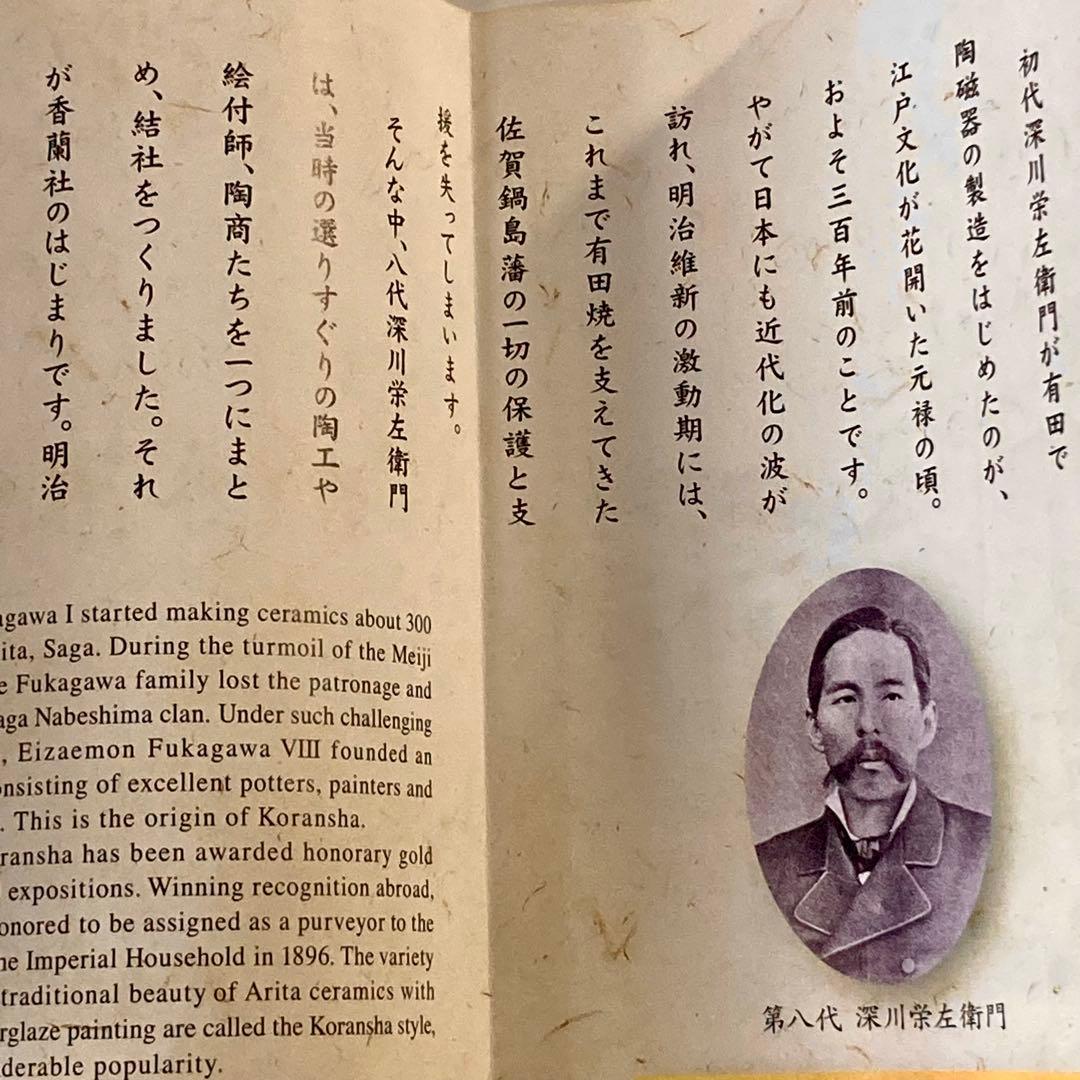 初代深川栄左衛門が有田で
陶磁器の製造をはじめたのが、
江戸文化が花開いた元禄の頃。
およそ三百年前のことです。
やがて日本にも近代化の波が
訪れ、明治維新の激動期には、
これまで有田焼を支えてきた
佐賀鍋島藩の一切の保護と支
援を失ってしまいます。
そんな中、八代深川栄左衛門
は、当時の選りすぐりの陶工や
絵付師、陶商たちを一つにまと
め、結社をつくりました。それ
が香蘭社のはじまりです。明治
agawa I started making ceramics about 300
ita, Saga. During the turmoil of the Meiji
e Fukagawa family lost the patronage and
aga Nabeshima clan. Under such challenging
, Eizaemon Fukagawa VIII founded an
onsisting of excellent potters, painters and
. This is the origin of Koransha.
ransha has been awarded honorary gold
expositions. Winning recognition abroad,
onored to be assigned as a purveyor to the
he Imperial Household in 1896. The variety
traditional beauty of Arita ceramics with
rglaze painting are called the Koransha style,
derable popularity.
第八代 深川栄左衛門